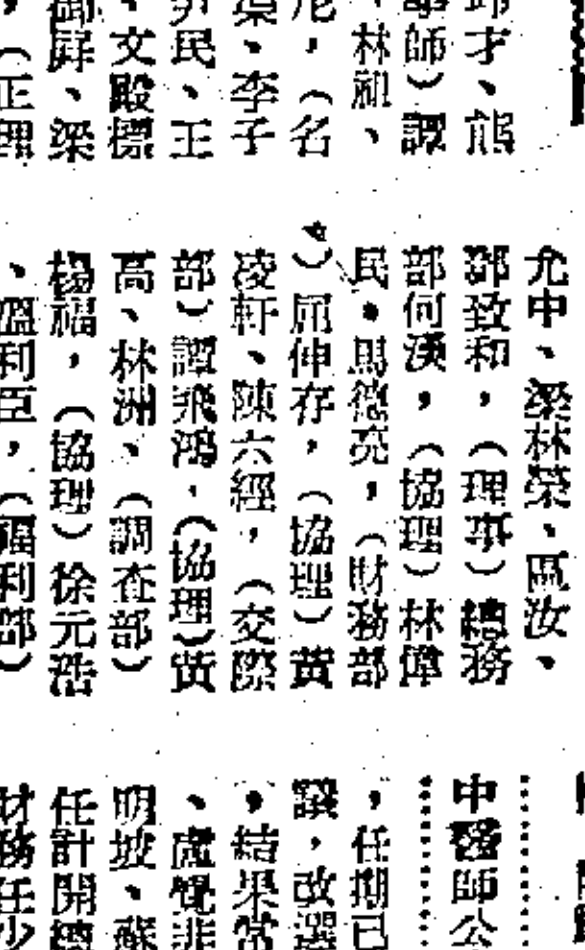 邱才、熊
師）譚
、林祖、
，（名
、李子
民、王
、文殿標
御屏、梁
，（正理
允中、梁林榮、區汝、
鄧致和，（理事）總務
部何漢，（協理）林偉
民，馬德亮，（財務部
）屈伸存，（協理）黃
凌軒、陳六經，（交際
部）譚飛鴻，（協理）黃
高、林洲、（調查部）
楊福，（協理）徐元浩
、溫利臣，（福利部）
中醫師公
，任期已
，改選
，結果常
、盧覺非
明坡、蘇
任計開總
財務任少